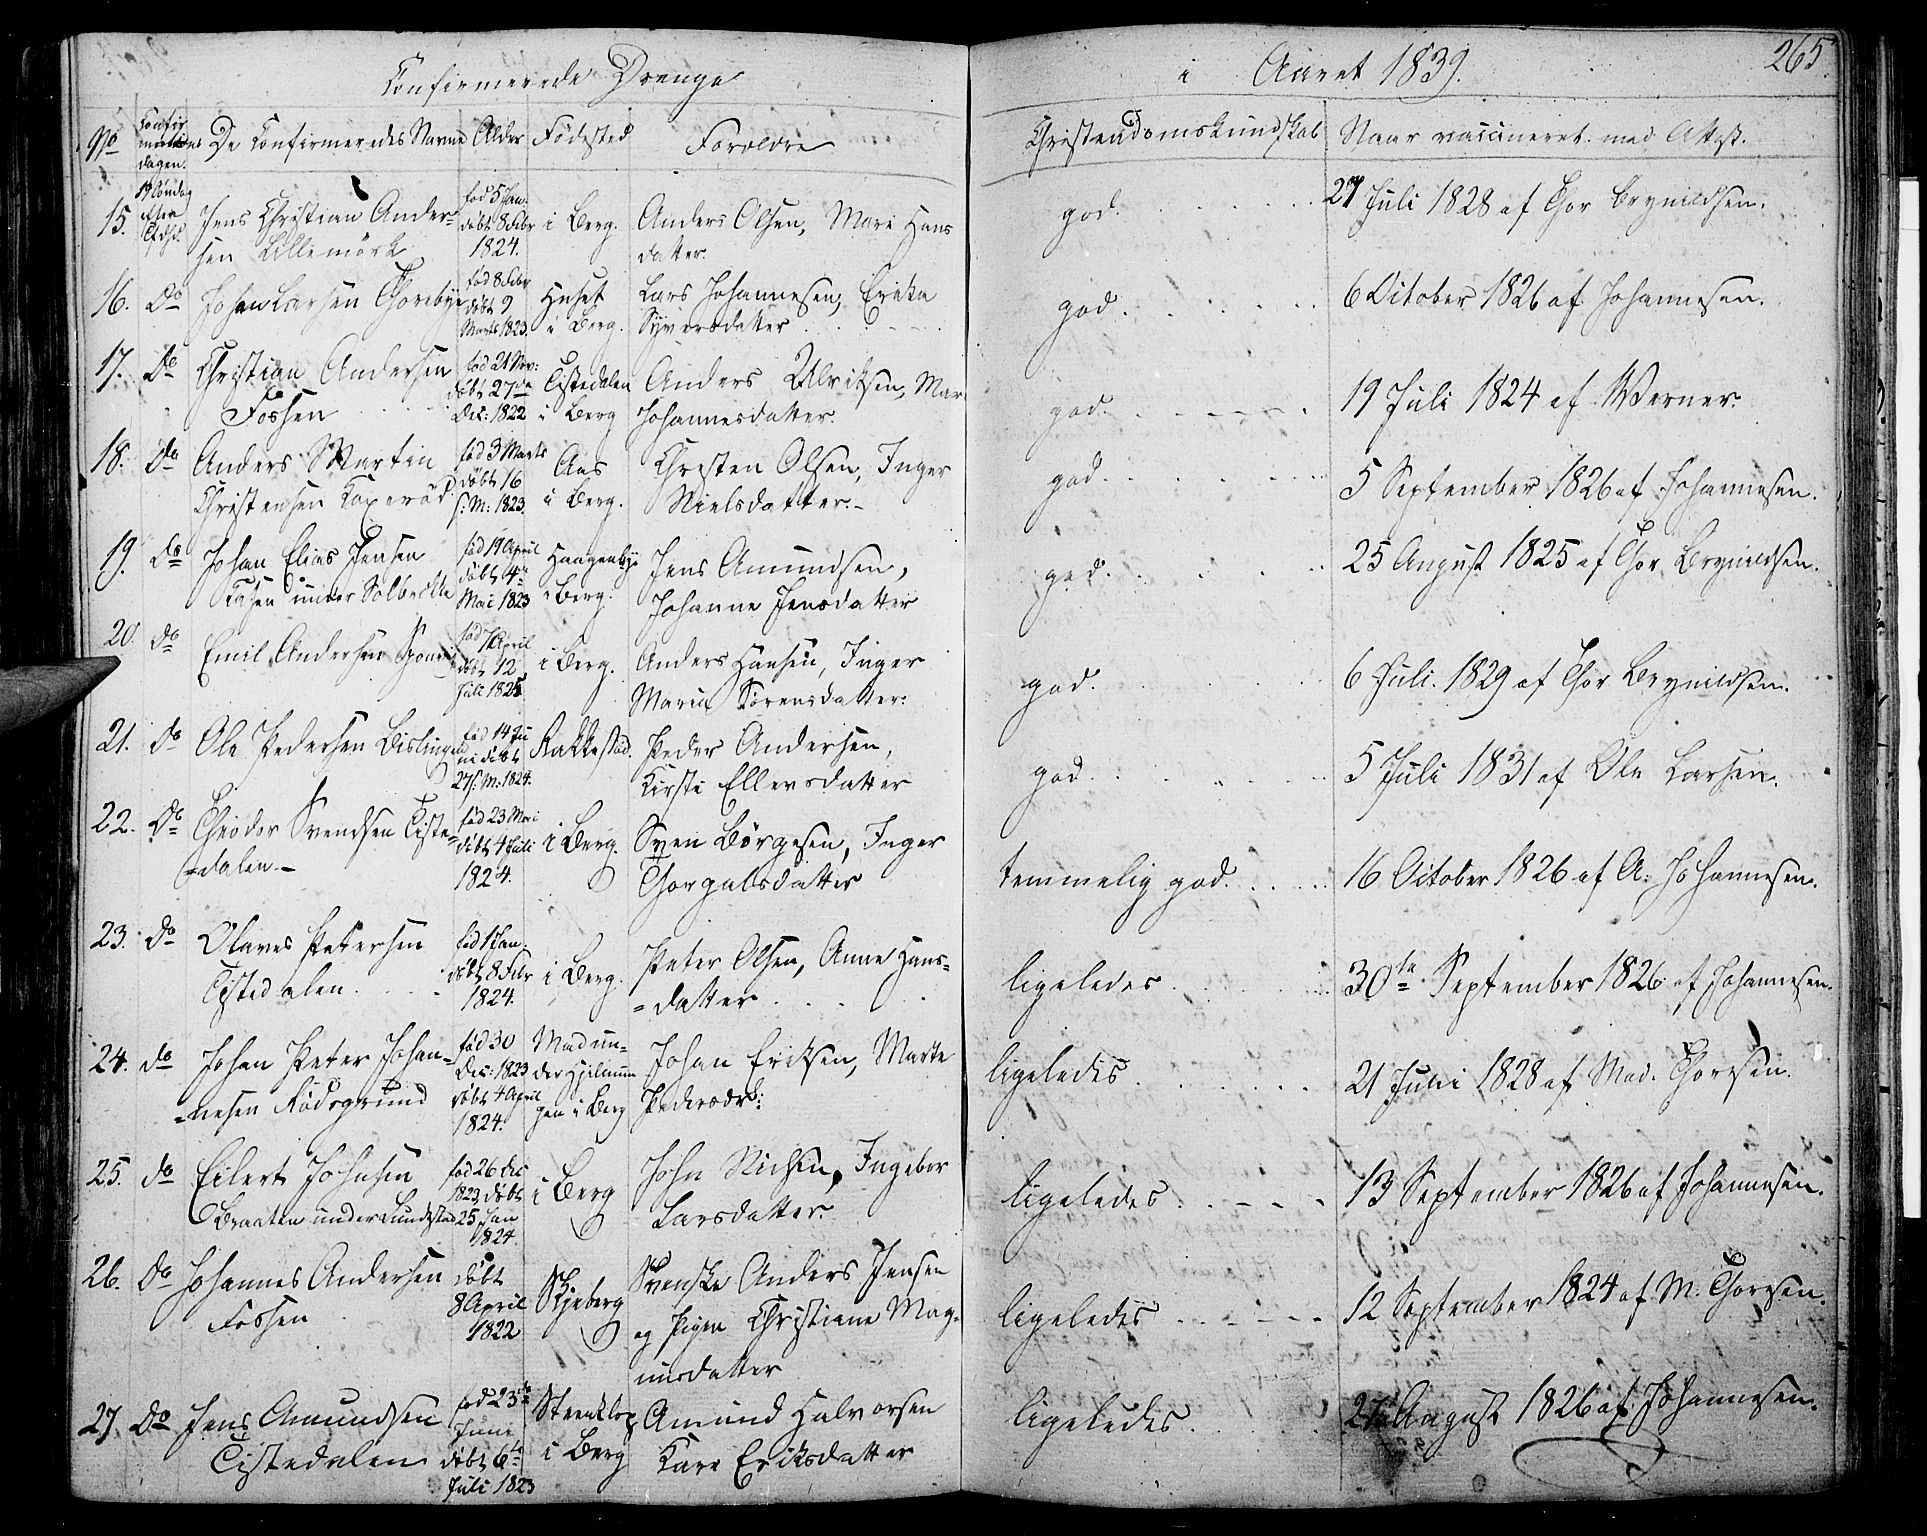 Confirmerede Drenge
i Aaret 1839.
265.
No
Confirmations dagen.
De Confirmeredes Navne
Alder
Fødested
Forældre
Christendomskundskab
Naar vaccineret med Attest.
15. 19 Søndag efter
Jens Christian Andersen Lillemørk
fød 5 Jan: døbt 8 Febr 1824.
i Berg.
Anders Olsen, Mari Hansdatter.
god.
27 Juli 1828 af Thor Brynildsen.
16. Do
Johan Larsen Thorebye
fød 8 Febr døbt 9 Marts 1823.
Huset i Berg.
Lars Johannesen, Erika Syversdatter
god.
6 October 1826 af Johannesen.
17. Do
Christian Andersen Fossen
fød 21 Nov: døbt 27de Dec: 1822
Tistedalen i Berg
Anders Ulriksen, Mari Johannesdatter.
god.
19 Juli 1824 af Werner.
18. Do
Anders Martin Christensen Kaxerød
fød 3 Marts døbt 16 s: M: 1823.
Aas i Berg.
Christen Olsen, Inger Nielsdatter.-
god.
5 September 1826 af Johannesen.
19. Do
Johan Elias Jensen under Solbrekke
fød 19 April døbt 4de Mai 1823
Haagenbye i Berg.
Jens Amundsen, Johanne Jensdatter
god.
25 August 1825 af Thor Brynildsen.
20. do
Emil Andersen
fød 7 April døbt 12 Juli 1825.
i Berg.
Anders Hansen, Inger Maria Sørensdatter.
god.
6 Juli 1829 af Thor Brynildsen.
21. do
Ole Pedersen Bislingen
fød 14 Juni døbt 27 s: M: 1824.
Rakkestad.
Peder Andersen, Kirsti Ellevsdatter
god
5 Juli 1831 af Ole Larsen.
22. Do
Theodor Svendsen Tiste=
=dalen.-
fød 23 Mai døbt 4 Juli 1824.
i Berg.
Sven Børgesen, Inger Thorgalsdatter
temmelig god.
16 October 1826 af A: Johannesen.
23. do
Olaves Petersen Tistedalen
fød 1 Jan: døbt 8 Febr 1824.
i Berg.
Peter Olsen, Anne Hans=
=datter
ligeledes
30te September 1826 af Johannesen.
24. do
Johan Peter Johan=
=nesen Rødsgrund
fød 30 Dec: 1823 døbt 4 April 1824.
Mad under Hjelmungen i Berg
Johan Eriksen, Marte Pedersdr:
ligeledes
21 Juni 1828 af Mad. Thoresen.
25. do
Eilert Johnsen Braatten under Lundestad
fød 26 Dec 1823, døbt 25 Jan 1824.
i Berg
John Nielsen, Ingebor Larsdatter
ligeledes
13 September 1826 af Johannesen.
26. Do
Johannes Andersen Fossen
døbt 8 April 1822
Skjeberg
Svenske Anders Jensen og Pigen Christiane Mag=
nusdatter
ligeledes
12 September 1824 af M. Thoresen.
27. Do
Jens Amundsen Tistedalen
fød 23de Juni døbt 6te Juli 1823
Steenklep i Berg
Amund Halvorsen Kari Eriksdatter
ligeledes.
27 August 1826 af Johannesen.